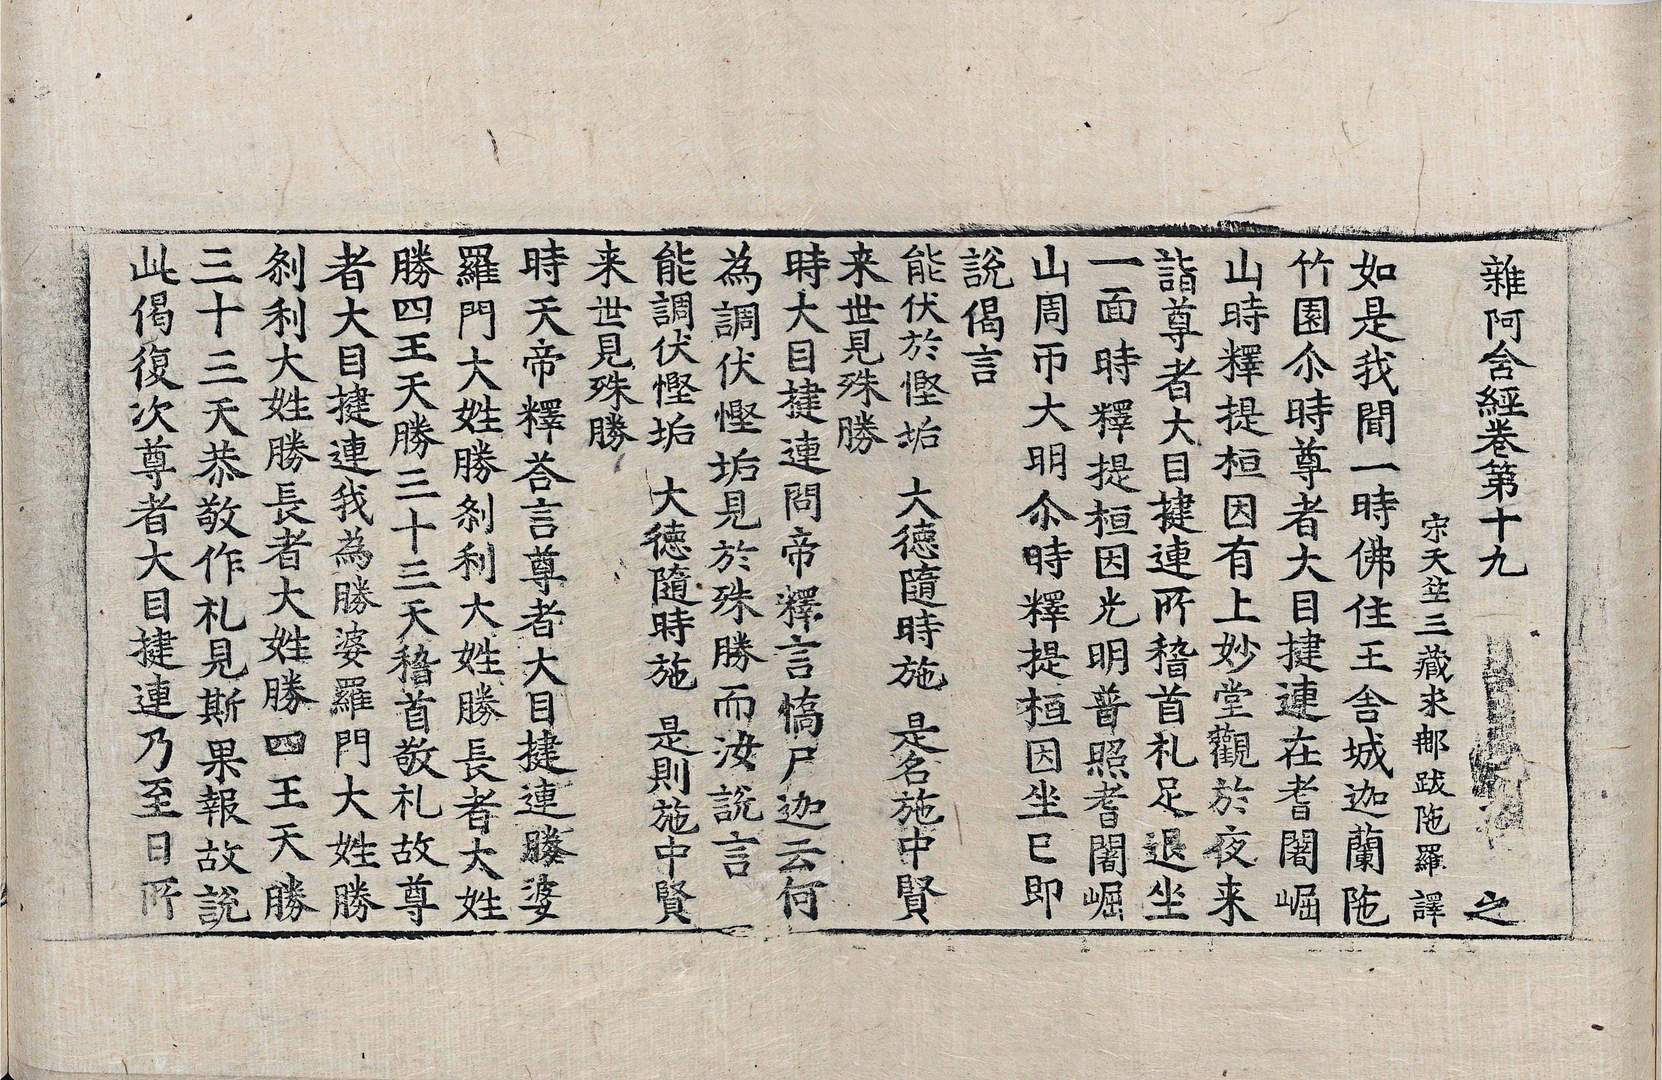 雜阿含經卷第十九 之
宋天竺三藏求那跋陁羅 譯
如是我聞一時佛住王舍城迦蘭陁
竹園尒時尊者大目揵連在耆闍崛
山時釋提桓因有上妙堂觀於夜来
詣尊者大目揵連所稽首礼足退坐
一面時釋提桓因光明普照耆闍崛
山周帀大明尒時釋提桓因坐已即
說偈言
能伏於慳垢 大德隨時施 是名施中賢
来世見殊勝
時大目揵連問帝釋言憍尸迦云何
為調伏慳垢見於殊勝而汝說言
能調伏慳垢 大德隨時施 是則施中賢
来世見殊勝
時天帝釋荅言尊者大目揵連勝婆
羅門大姓勝剎利大姓勝長者大姓
勝四王天勝三十三天稽首敬礼故尊
者大目揵連我為勝婆羅門大姓勝
剎利大姓勝長者大姓勝四王天勝
三十三天恭敬作礼見斯果報故說
此偈復次尊者大目揵連乃至日所